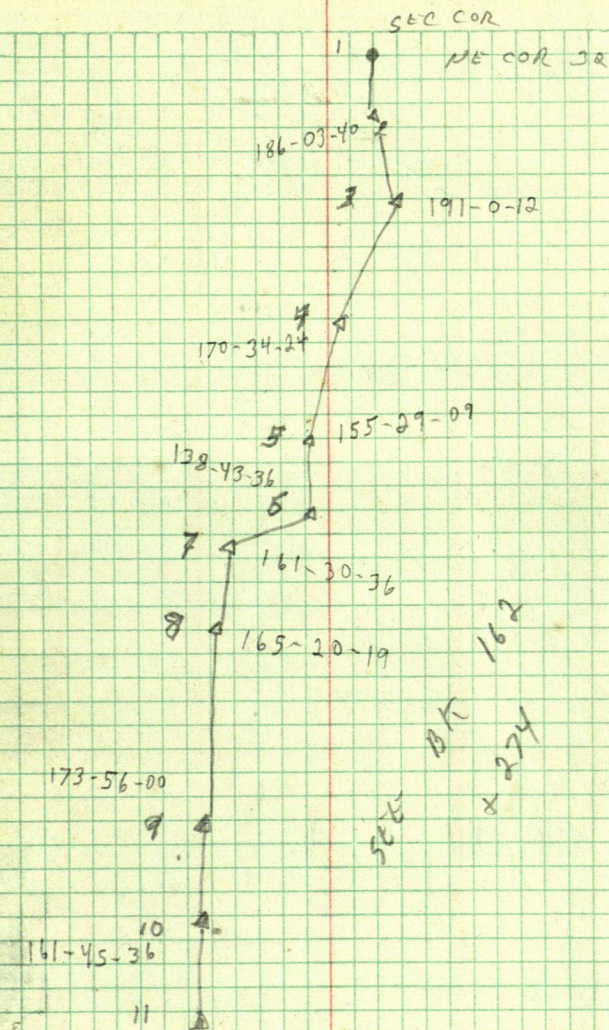 SEC COR
1
NE COR 32
186-03-40
2
3
191-0-12
4
170-34-24
5
155-29-09
138-43-36
6
7
161-30-36
8
165-20-19
173-56-00
9
10
161-45-36
11
SEE BK 162
& 274